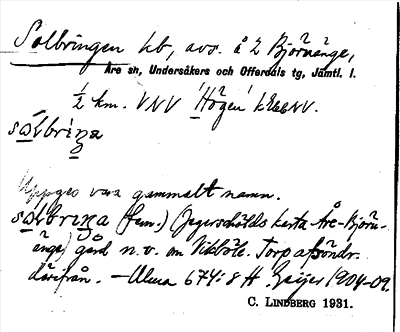 Solbringen hb, avs. å 2 Björnänge,
Åre sn, Undersåkers och Offerdals tg, Jämtl. l.
½ km. VNV Högen
sɷlbriŋa
Uppges vara gammalt namn.
sɷlbriŋa (fem.) (Jegerschölds karta Åre-Björn-
änge) gård n.v. om Vikböle. Torp afsöndr.
därifrån. – Ulma 674:8 H. Geijer 1904-09.
C. LINDBERG 1931.